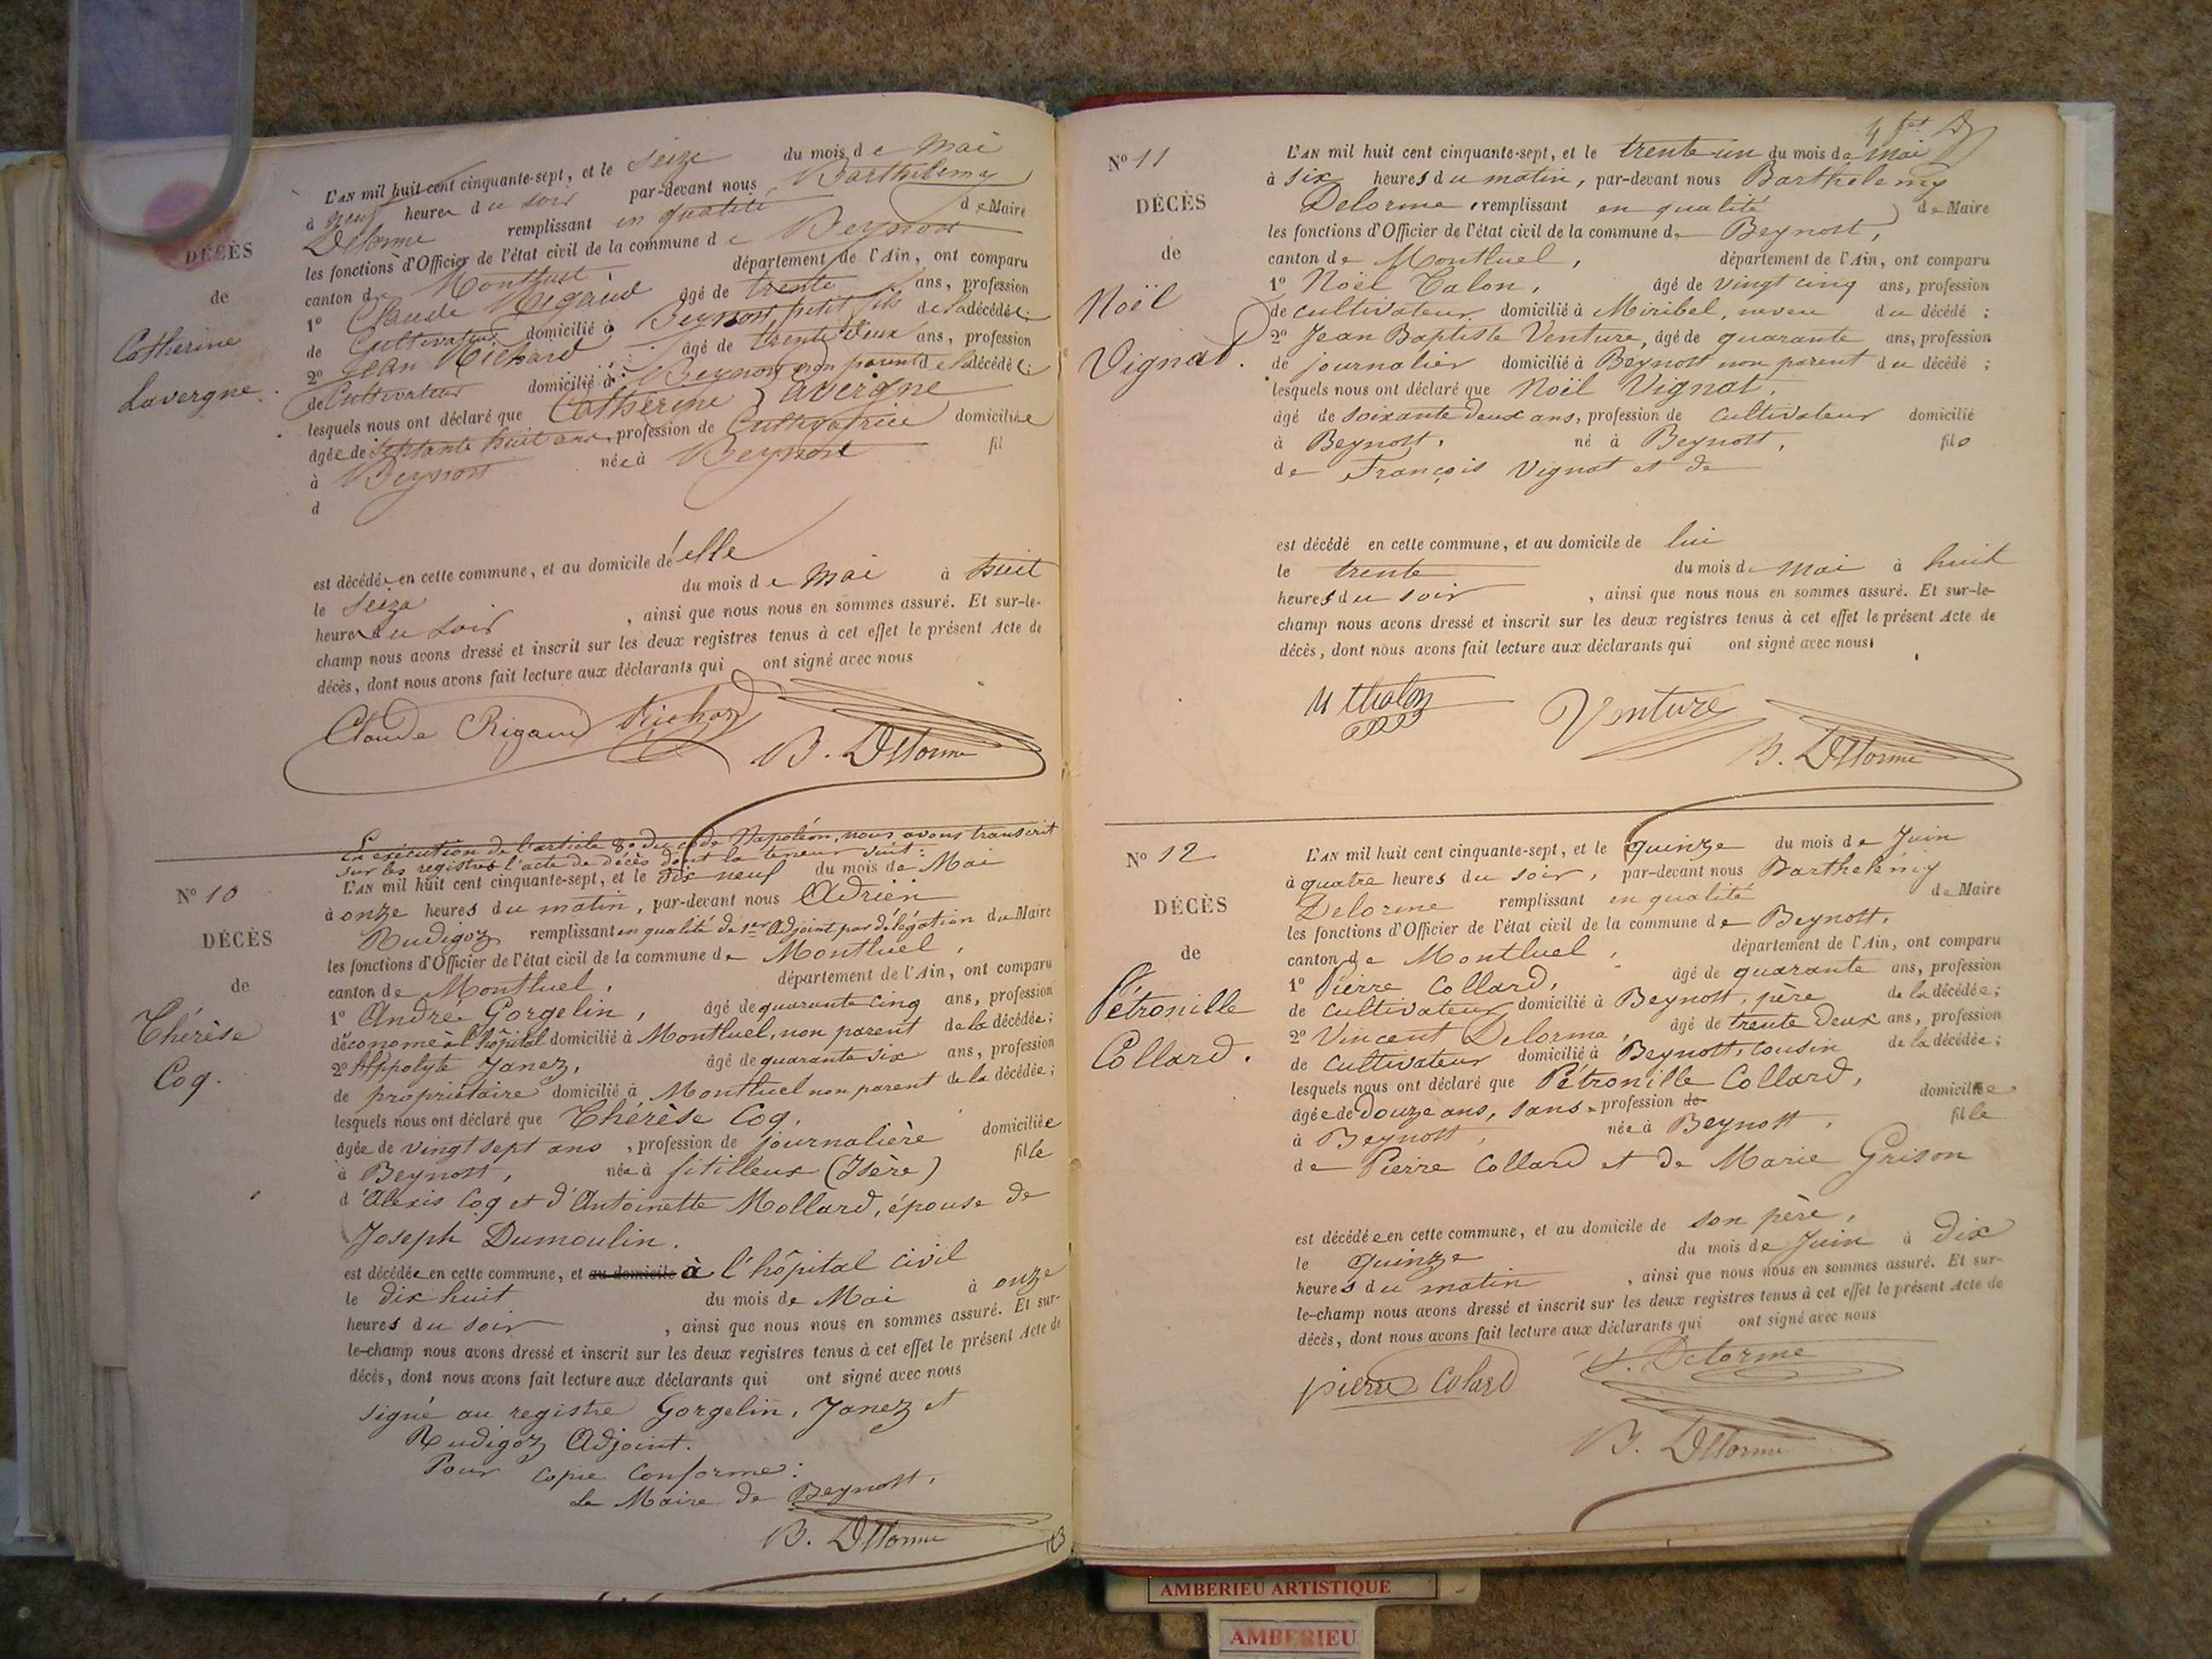 DÉCÈS
de
Catherine
Lavergne.
L'AN mil huit cent cinquante-sept, et le seize du mois de Mai
à neuf heures du soir par-devant nous Barthélemy
Delorme remplissant en qualité de Maire
les fonctions d'Officier de l'état civil de la commune de Beynost
canton de Montluel, département de l'Ain, ont comparu
1º Claude Rigaud âgé de trente ans, profession
de Cultivateur domicilié à Beynost, petit fils de la décédée;
2º Jean Richard âgé de trente deux ans, profession
de Cultivateur domicilié à Beynost non parent de la décédée;
lesquels nous ont déclaré que Catherine Lavergne
âgée de septante huit ans, profession de Cultivatrice domiciliée
à Beynost née à Beynost fil
d
est décédée en cette commune, et au domicile d'elle
le seize du mois de Mai à huit
heures du soir, ainsi que nous nous en sommes assuré. Et sur-le-
champ nous avons dressé et inscrit sur les deux registres tenus à cet effet le présent Acte de
décès, dont nous avons fait lecture aux déclarants qui ont signé avec nous
Claude Rigaud Richard
B. Delorme
En exécution de l'article 80 du code Napoléon, nous avons transcrit
sur les registres l'acte de décès dont la teneur suit:
Nº 10
DÉCÈS
de
Thérèse
Coq.
L'AN mil huit cent cinquante-sept, et le dix neuf du mois de Mai
à onze heures du matin, par-devant nous Adrien
Rudigoz remplissant en qualité de 1er Adjoint par délégation du Maire
les fonctions d'Officier de l'état civil de la commune de Montluel,
canton de Montluel, département de l'Ain, ont comparu
1º André Gorgelin, âgé de quarante cinq ans, profession
d'économe à l'hôpital domicilié à Montluel, non parent de la décédée;
2º Hyppolyte Janez, âgé de quarante six ans, profession
de propriétaire domicilié à Montluel non parent de la décédée;
lesquels nous ont déclaré que Thérèse Coq,
âgée de vingt sept ans, profession de journalière domiciliée
à Beynost, née à fitilleux (Isère) fille
d'Alexis Coq et d'Antoinette Mollard, épouse de
Joseph Dumoulin.
est décédée en cette commune, et au domicile à l'hôpital civil
le dix huit du mois de Mai à onze
heures du soir, ainsi que nous nous en sommes assuré. Et sur-
le-champ nous avons dressé et inscrit sur les deux registres tenus à cet effet le présent Acte de
décès, dont nous avons fait lecture aux déclarants qui ont signé avec nous
signé au registre Gorgelin, Janez et
Rudigoz Adjoint.
Pour copie conforme:
Le Maire de Beynost,
B. Delorme
Nº 11
DÉCÈS
de
Noël
Vignat.
L'AN mil huit cent cinquante-sept, et le trente un du mois de Mai
à six heures du matin, par-devant nous Barthélemy
Delorme, remplissant en qualité de Maire
les fonctions d'Officier de l'état civil de la commune de Beynost,
canton de Montluel, département de l'Ain, ont comparu
1º Noël Talon, âgé de vingt cinq ans, profession
de cultivateur domicilié à Miribel, neveu du décédé;
2º Jean Baptiste Venture, âgé de quarante ans, profession
de journalier domicilié à Beynost non parent du décédé;
lesquels nous ont déclaré que Noël Vignat,
âgé de soixante deux ans, profession de cultivateur domicilié
à Beynost, né à Beynost, fils
de François Vignat et de
est décédé en cette commune, et au domicile de lui
le trente du mois de Mai à huit
heures du soir, ainsi que nous nous en sommes assuré. Et sur-le-
champ nous avons dressé et inscrit sur les deux registres tenus à cet effet le présent Acte de
décès, dont nous avons fait lecture aux déclarants qui ont signé avec nous.
N thalon Venture
B. Delorme
Nº 12
DÉCÈS
de
Pétronille
Collard.
L'AN mil huit cent cinquante-sept, et le quinze du mois de Juin
à quatre heures du soir, par-devant nous Barthélémy
Delorme remplissant en qualité de Maire
les fonctions d'Officier de l'état civil de la commune de Beynost,
canton de Montluel, département de l'Ain, ont comparu
1º Pierre Collard, âgé de quarante ans, profession
de cultivateur domicilié à Beynost, père de la décédée;
2º Vincent Delorme, âgé de trente deux ans, profession
de cultivateur domicilié à Beynost, cousin de la décédée;
lesquels nous ont déclaré que Pétronille Collard,
âgée de douze ans, sans profession de domiciliée
à Beynost, née à Beynost, fille
de Pierre Collard et de Marie Grison
est décédée en cette commune, et au domicile de son père,
le quinze du mois de Juin à dix
heures du matin, ainsi que nous nous en sommes assuré. Et sur-
le-champ nous avons dressé et inscrit sur les deux registres tenus à cet effet le présent Acte de
décès, dont nous avons fait lecture aux déclarants qui ont signé avec nous
pierre Colard V. Delorme
B. Delorme
AMBERIEU ARTISTIQUE
AMBERIEU